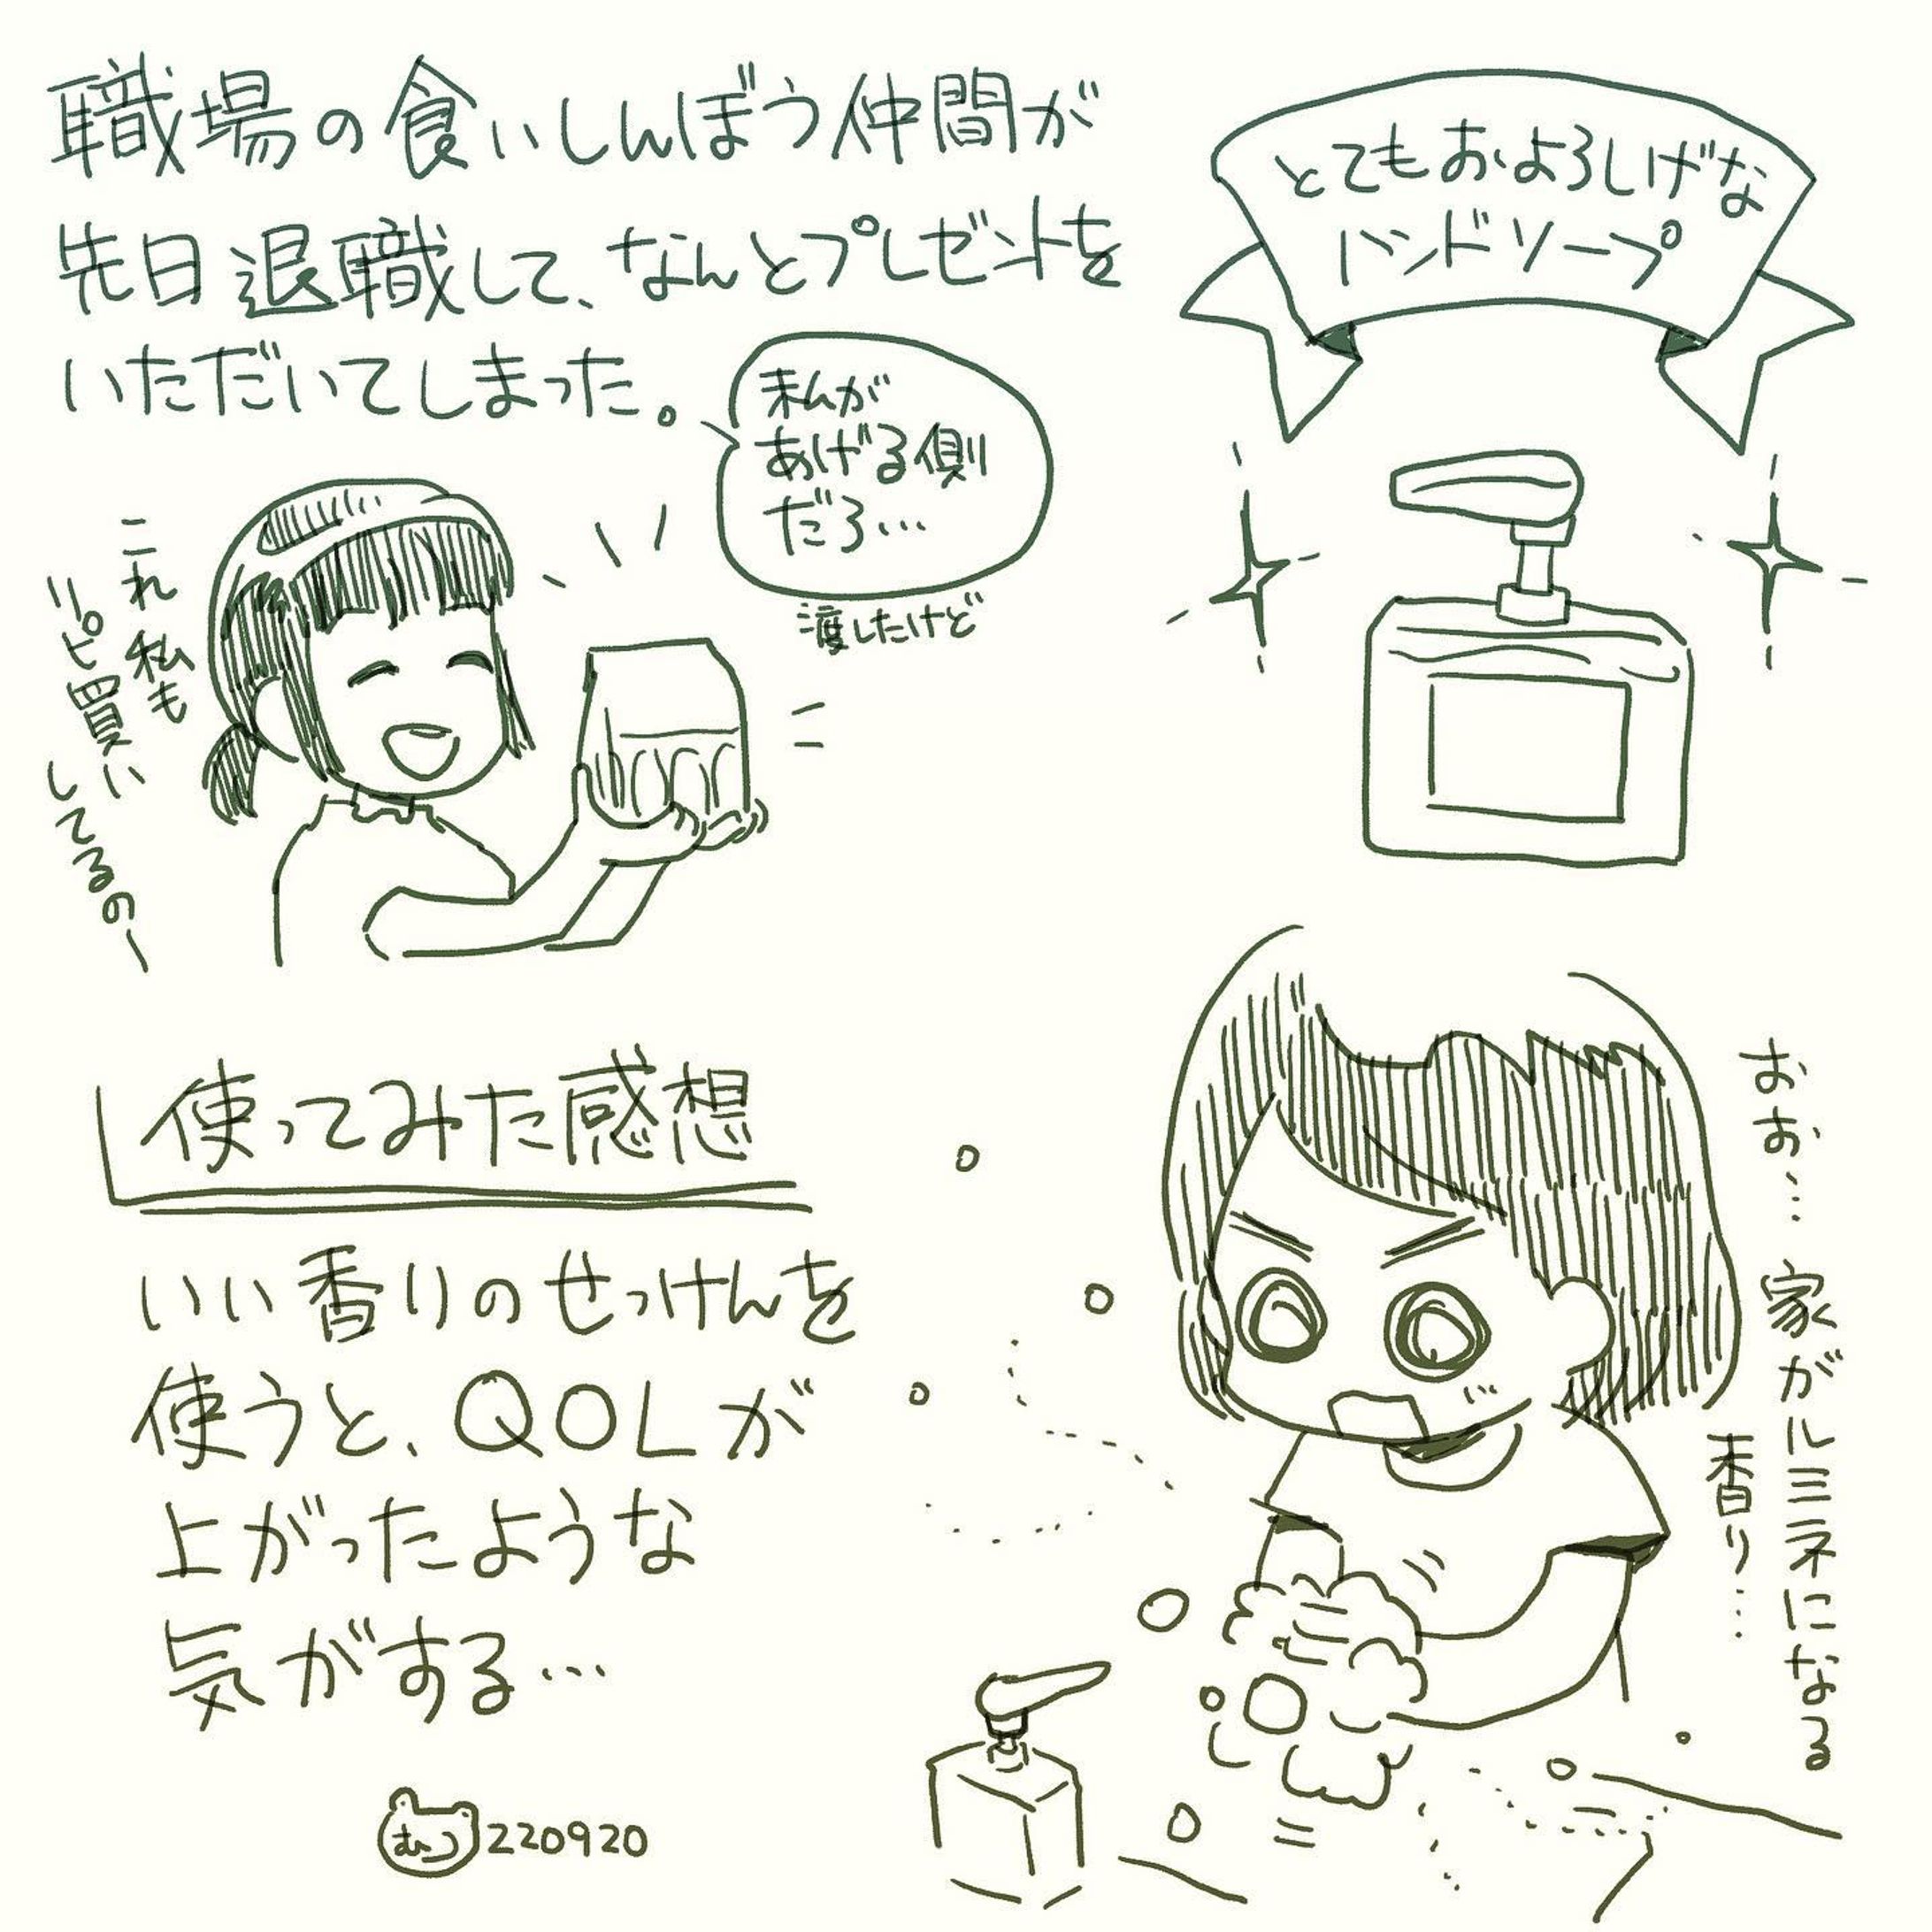 職場の食いしんぼう仲間が
先日退職して、なんとプレゼントを
いただいてしまった。
まんが
あげる側
だろ…
渡したけど
これ私も
リピ買い
してるの〜
とてもおよろしげな
ハンドソープ
使ってみた感想
いい香りのせっけんを
使うと、QOLが
上がったような
気がする…
おお…家がルミネになる
香り…
むつ
220920